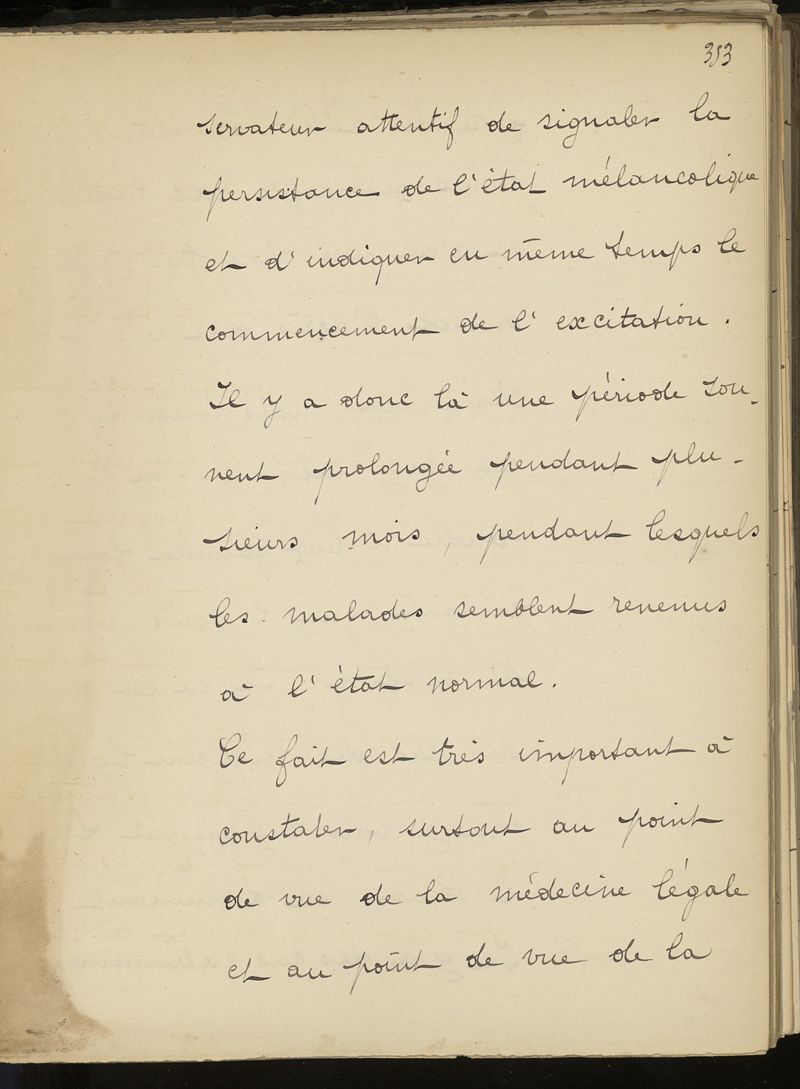 353
servateur attentif de signaler la
persistance de l'état mélancolique
et d'indiquer en même temps le
commencement de l'excitation.
Il y a donc là une période sou-
vent prolongée pendant plu-
sieurs mois, pendant lesquels
les malades semblent revenus
à l'état normal.
Ce fait est très important à
constater, surtout au point
de vue de la médecine légale
et au point de vue de la